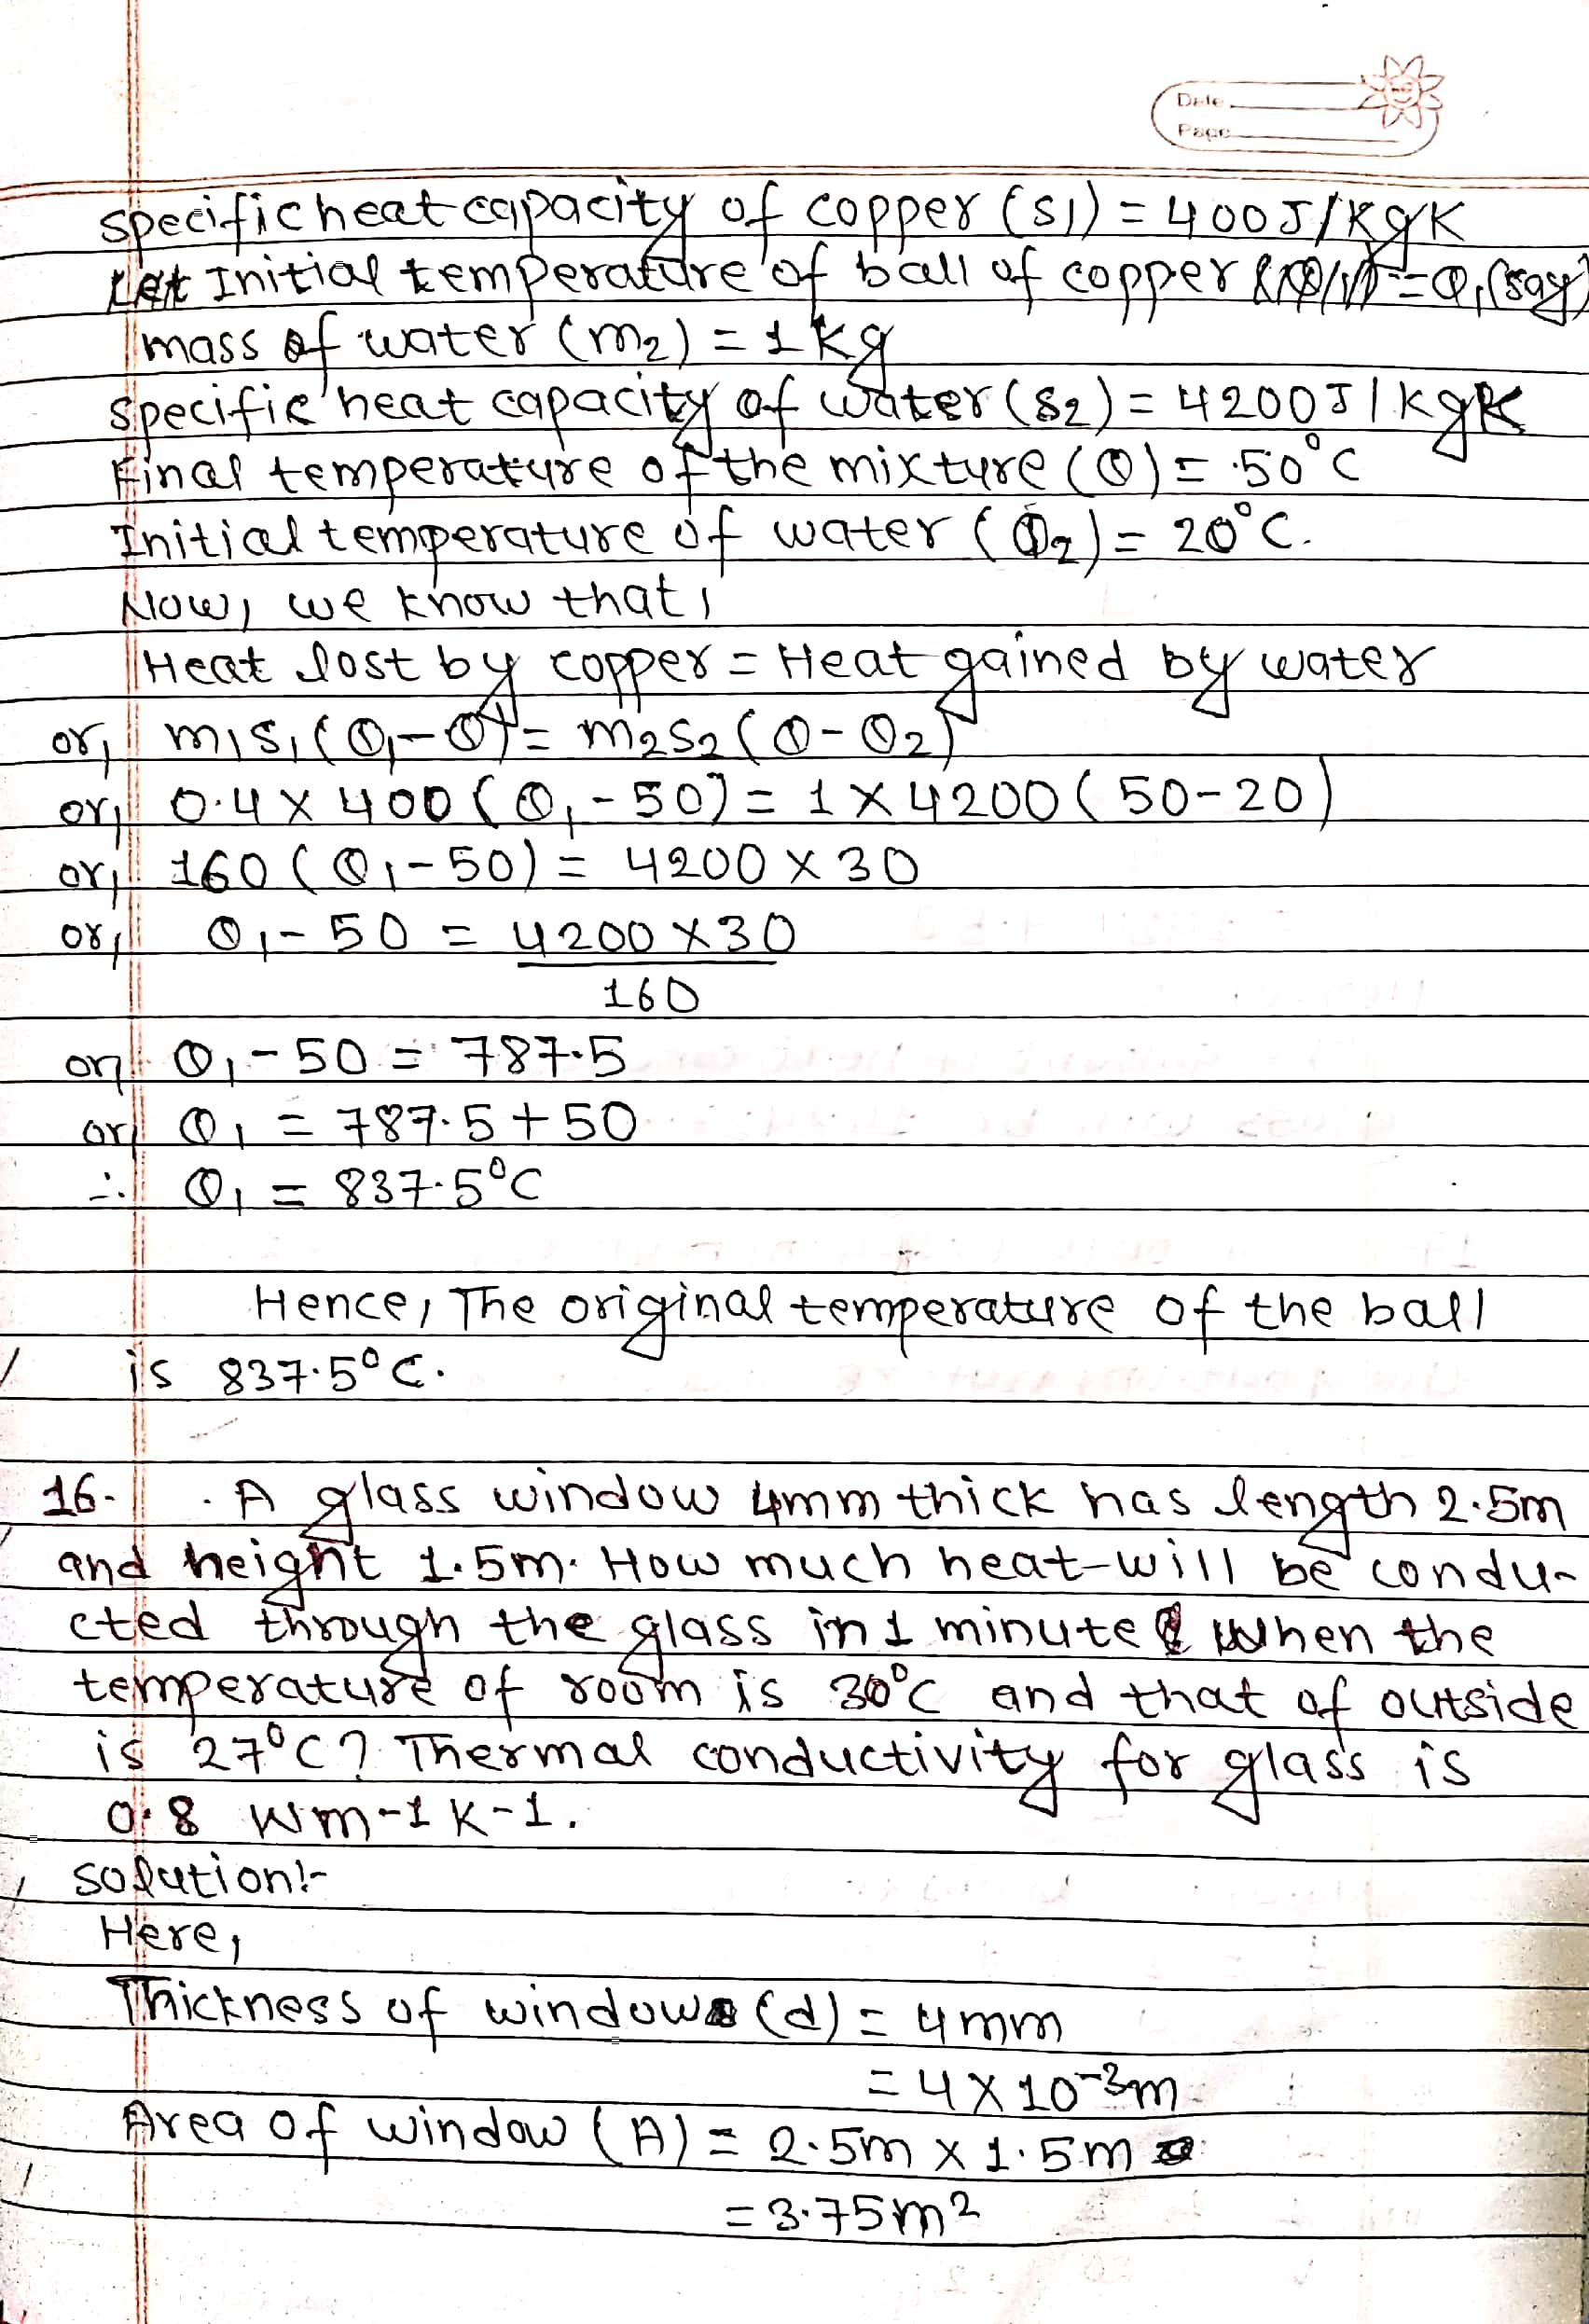 Date
Page
specific heat capacity of copper (s1) = 400 J/kgK
Let Initial temperature of ball of copper = θ1 (say)
mass of water (m2) = 1 kg
specific heat capacity of water (s2) = 4200 J/kgK
Final temperature of the mixture (θ) = 50°C
Initial temperature of water (θ2) = 20°C.
Now, we know that,
Heat lost by copper = Heat gained by water
or, m1s1(θ1-θ) = m2s2(θ-θ2)
or, 0.4 × 400 (θ1-50) = 1 × 4200 (50-20)
or, 160 (θ1-50) = 4200 × 30
or, θ1-50 = 4200 × 30
160
or, θ1-50 = 787.5
or, θ1 = 787.5 + 50
∴ θ1 = 837.5°C
Hence, The original temperature of the ball
is 837.5°C.
16. A glass window 4mm thick has length 2.5m
and height 1.5m. How much heat will be condu-
cted through the glass in 1 minute When the
temperature of room is 30°C and that of outside
is 27°C? Thermal conductivity for glass is
0.8 Wm-1 K-1.
solution:-
Here,
Thickness of window (d) = 4mm
= 4 × 10-3m
Area of window (A) = 2.5m × 1.5m
= 3.75m2